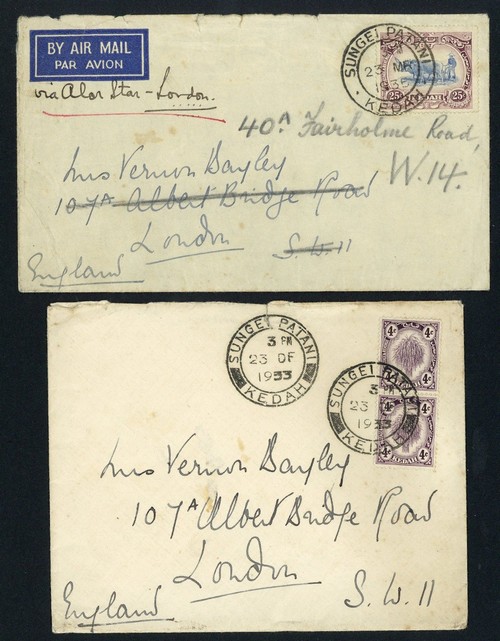 BY AIR MAIL
PAR AVION
via Alor Star - London.
SUNGEI PATANI
23 MR
193
KEDAH
25c 25c
40A Fairholme Road,
W.14.
Mrs Vernon Bayley
107A Albert Bridge Road
London
S.W.11
England
SUNGEI PATANI
3 PM
23 DE
1933
KEDAH
4c 4c
SUNGEI PATANI
3 PM
23
1933
KEDAH
4c 4c
KEDAH
Mrs Vernon Bayley
107A Albert Bridge Road
London
S.W.11
England